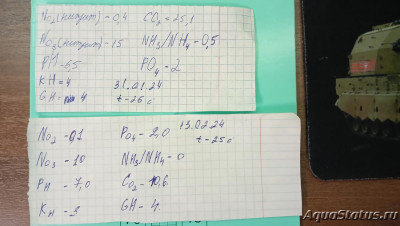 NO₂(нитрит) - 0,4 CO₂ = 25,1
NO₃(нитрат) - 15 NH3/NH4 - 0,5
PH = 6.5 PO4 - 2
KH = 4 31.01.24
GH = 4 t - 25 c
NO₂ - 0,1 PO4 - 2,0 13.02.24
t - 25 c
NO₃ - 10 NH3/NH4 - 0
PH - 7,0 CO₂ - 10,6
KH - 3 GH - 4
AquaStatus.ru